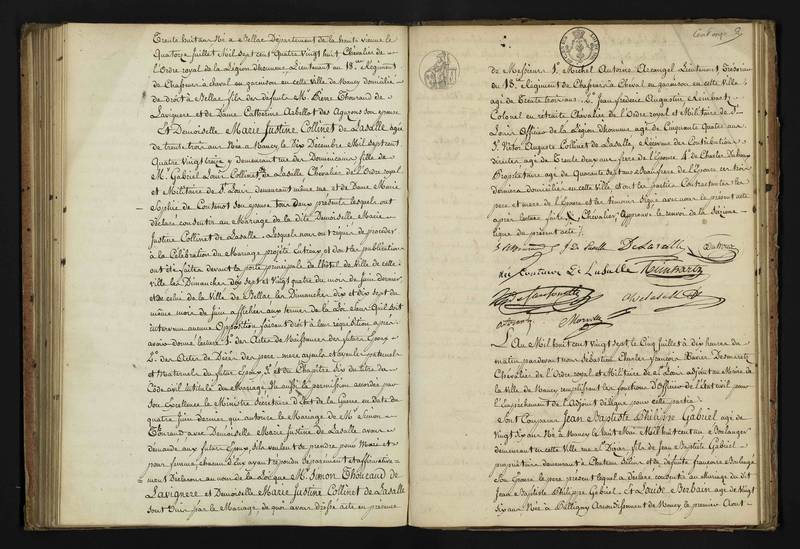 Trente huit ans Né à Bellac Département de la haute vienne le
Quatorze Juillet Mil sept cent Quatre Vingt huit Chevalier de
l'Ordre royal de la Légion d'honneur Lieutenant au 18me Régiment
de Chasseurs à cheval en garnison en cette Ville de Nancy domicilié
de droit à Bellac fils des défunts Mr Pierre Thouraud de
Lavignere et Dame Catherine Arbellot des Aguzons son épouse
Et Demoiselle Marie Justine Collinet de Lasalle agée
de trente trois ans Née à Nancy le Dix Décembre Mil sept cent
Quatre Vingt treize y demeurant rue des Dominicains fille de
Mr Gabriel Louis Collinet de Lasalle Chevalier de l'Ordre royal
et Militaire de St Louis demeurant même rue et de Dame Marie
Sophie de son épouse tous deux présents lesquels ont
déclaré consentir au Mariage de la dite Demoiselle Marie
Justine Collinet de Lasalle. Lesquels nous ont requis de procéder
à la Célébration du Mariage projeté entr'eux et dont les publications
ont été faites devant la porte principale de l'hôtel de Ville de cette
ville les Dimanches dix sept et vingt quatre du mois de Juin dernier
et de celui de la Ville de Bellac les Dimanches dix et dix sept du
même mois de Juin affichées aux termes de la Loi sans qu'il soit
intervenu aucune Opposition, faisant droit à leur réquisition après
avoir donné lecture 1° des Actes de Naissances des futurs Epoux
2° des Actes de Décès des père mère ayeuls et ayeules paternels
et Maternels du futur Epoux, 3° et du Chapitre six du titre du
Code civil intitulé du Mariage, Vu aussi la permission accordée par
Son Excellence le Ministre Secrétaire d'Etat de la Guerre en date du
quatre Juin dernier qui autorise le Mariage de Mr Simon
Thouraud avec Demoiselle Marie Justine de Lasalle avons
demandé aux futurs Epoux s'ils veulent se prendre pour Mari et
pour femme, chacun d'eux ayant répondu séparément et affirmative
ment Déclarons au nom de la Loi que Mr Simon Thouraud de
Lavignere et Demoiselle Marie Justine Collinet de Lasalle
sont Unis par le Mariage, de quoi avons dressé acte en présence
de Messieurs 1° Michel Antoine Arcangel Lieutenant Trésorier
du 18me Régiment de Chasseurs à Cheval en garnison en cette Ville
agé de Trente trois ans. 2° Jean frédéric Augustin Reinhart
Colonel en retraite Chevalier de l'Ordre royal et Militaire de St
Louis Officier de la Légion d'honneur agé de Cinquante Quatre ans
3° Victor Auguste Collinet de Lasalle, Receveur des Contributions
directes agé de Trente deux ans frère de l'Epouse. 4° de Charles
Propriétaire agé de Quarante sept ans Beau frère de l'Epouse ces trois
derniers domiciliés en cette Ville, et ont les parties Contractantes les
père et mère de l'Epouse et les témoins Signé avec nous le présent acte
après lecture faite, Chevalier, Approuvé le renvoi de la Sixième
ligne du présent acte.
De Lasalle
De Lasalle Reinhart
L'An Mil huit cent vingt sept le Cinq Juillet à dix heures du
matin pardevant nous Sébastien Charles françois Xavier Desmaretz
Chevalier de l'Ordre royal et Militaire de St Louis adjoint au Maire de
la Ville de Nancy remplissant les fonctions d'Officier de l'Etat civil pour
l'Empêchement de l'Adjoint délégué pour cette partie.
Sont Comparus Jean Baptiste Philippe Gabriel agé de
Vingt six ans Né à Nancy le huit Mil huit cent un Boulanger
demeurant en cette Ville rue St Dizier, fils de Jean Baptiste Gabriel
propriétaire demeurant à Chateau Salins et de défunte francoise
Son épouse le père présent lequel a déclaré consentir au mariage du dit
Jean Baptiste Philippe Gabriel. Et Louise agée de Vingt
six ans Née à Arrondissement de Nancy le premier Aout